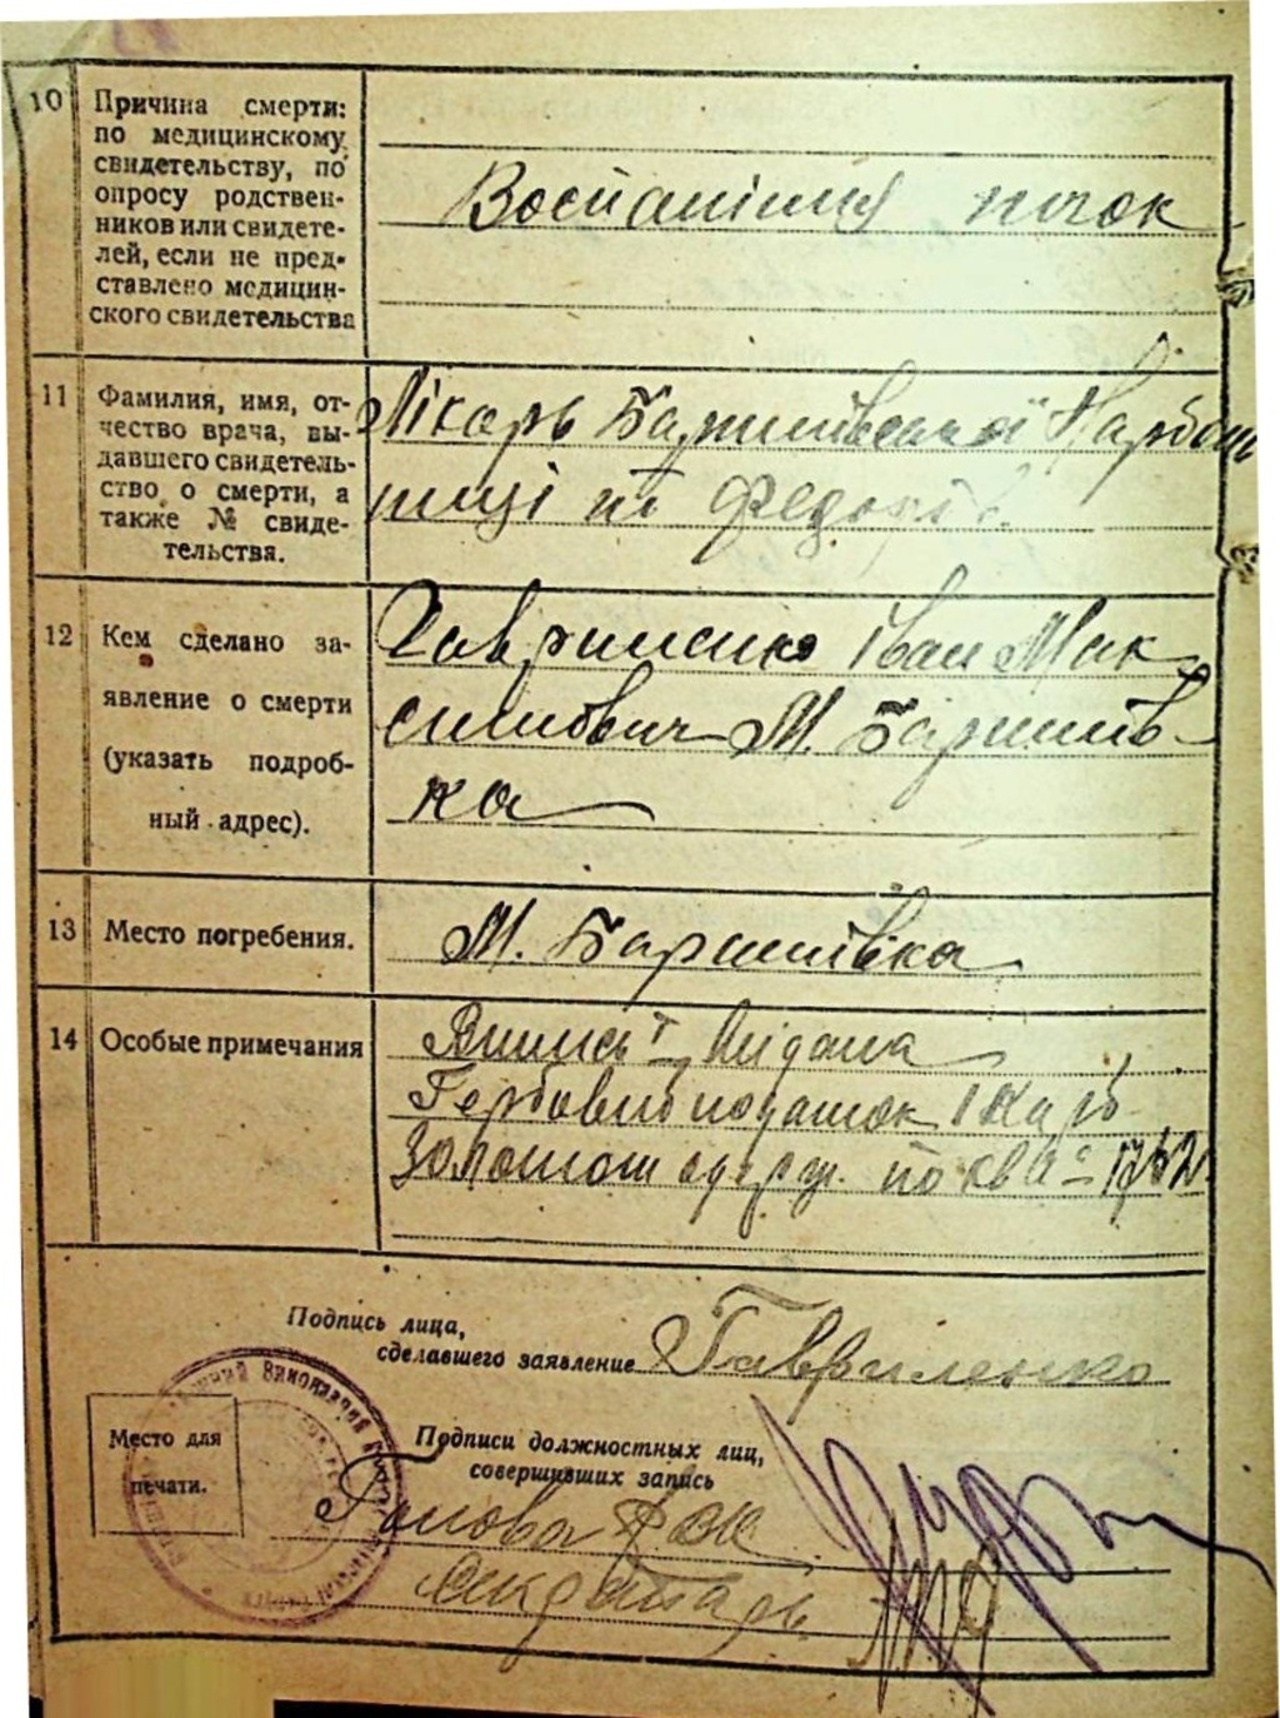 10 Причина смерти:
по медицинскому
свидетельству, по
опросу родствен-
ников или свидете-
лей, если не пред-
ставлено медицин-
ского свидетельства
почок
11 Фамилия, имя, от-
чество врача, вы-
давшего свидетель-
ство о смерти, а
также № свиде-
тельства.
Лікарь Баришівської
12 Кем сделано за-
явление о смерти
(указать подроб-
ный адрес).
Гавриленко Іван Мак
симович М. Баришів-
ка
13 Место погребения.
М. Баришівка
14 Особые примечания
Видана
Гербовий податок 1 Карб
по кв
Подпись лица,
сделавшего заявление Гавриленко
Место для
печати.
Подписи должностных лиц,
совершивших запись
Голова
Секратарь